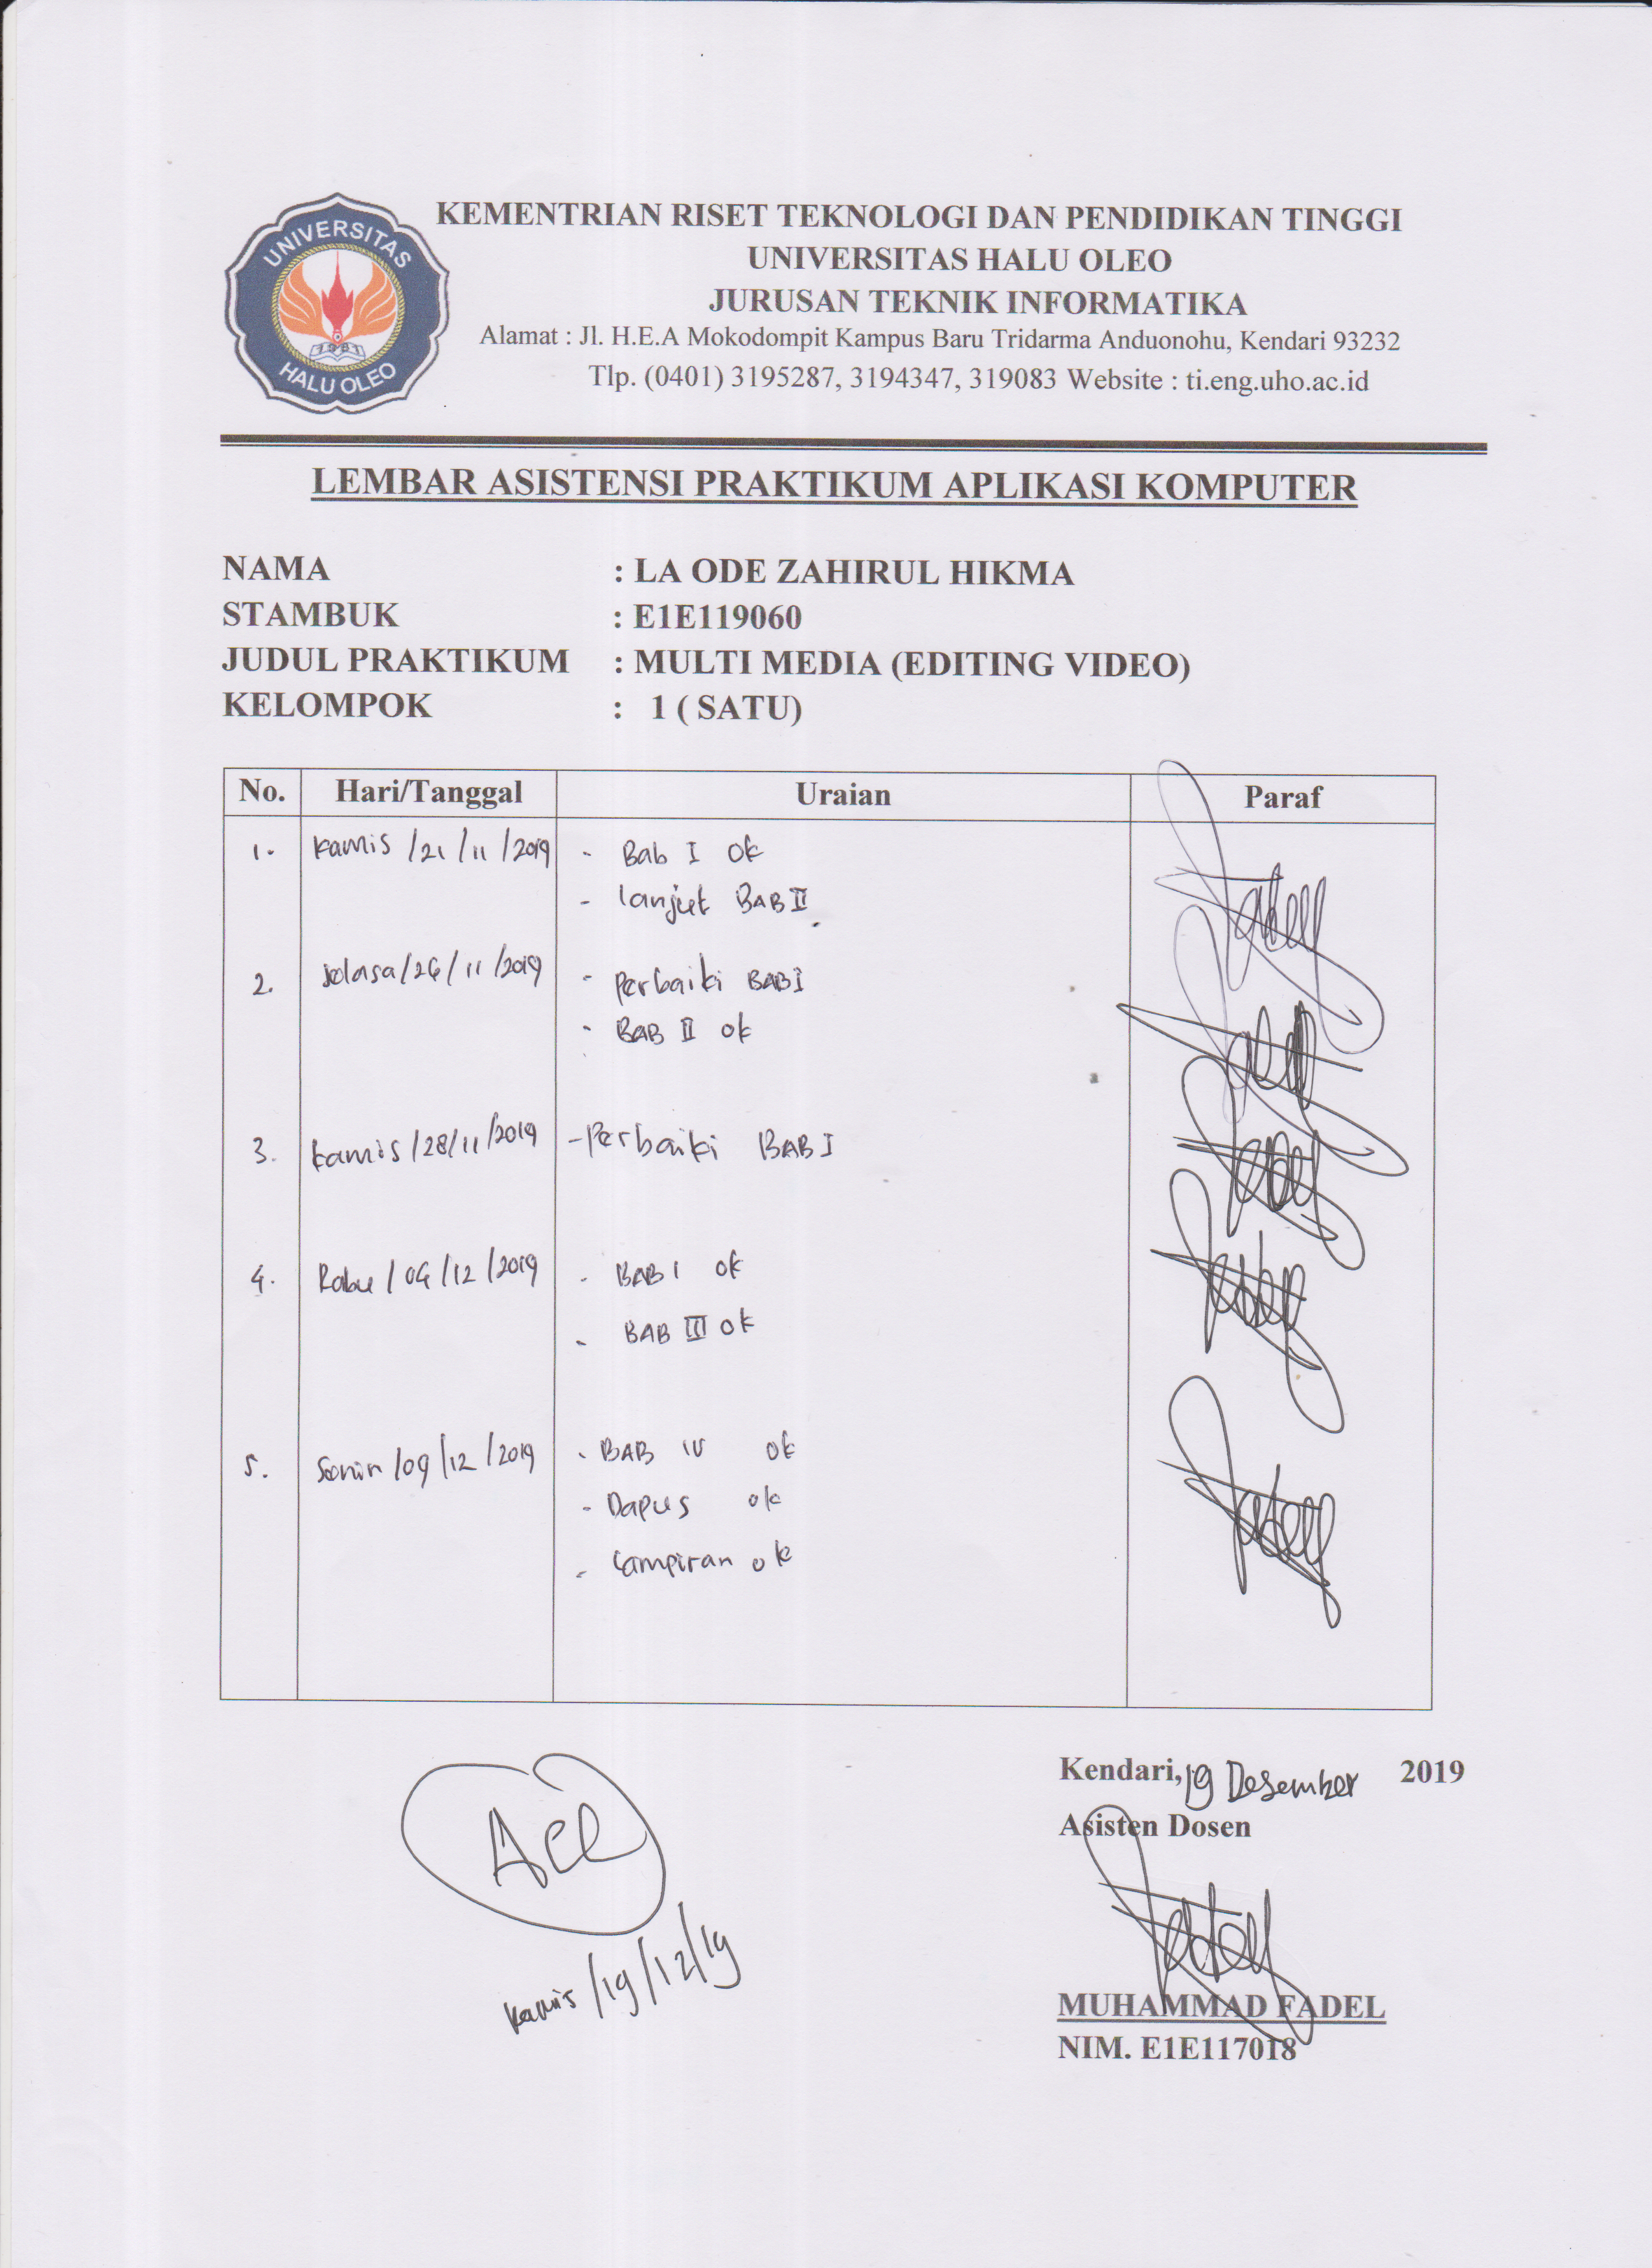 UNIVERSITAS
1981
HALU OLEO
KEMENTRIAN RISET TEKNOLOGI DAN PENDIDIKAN TINGGI
UNIVERSITAS HALU OLEO
JURUSAN TEKNIK INFORMATIKA
Alamat : Jl. H.E.A Mokodompit Kampus Baru Tridarma Anduonohu, Kendari 93232
Tlp. (0401) 3195287, 3194347, 319083 Website : ti.eng.uho.ac.id
LEMBAR ASISTENSI PRAKTIKUM APLIKASI KOMPUTER
NAMA : LA ODE ZAHIRUL HIKMA
STAMBUK : E1E119060
JUDUL PRAKTIKUM : MULTI MEDIA (EDITING VIDEO)
KELOMPOK : 1 ( SATU)
No. Hari/Tanggal Uraian Paraf
1. Kamis /21/11/2019 - Bab I ok
- lanjut BAB II
2. selasa/26/11/2019 - Perbaiki BAB I
- BAB II ok
3. kamis/28/11/2019 - Perbaiki BAB I
4. Rabu/04/12/2019 - BAB I ok
- BAB III ok
5. Senin/09/12/2019 - BAB IV ok
- Dapus ok
- Lampiran ok
Kendari, 19 Desember 2019
Asisten Dosen
Acc
Kamis/19/12/19
MUHAMMAD FADEL
NIM. E1E117018